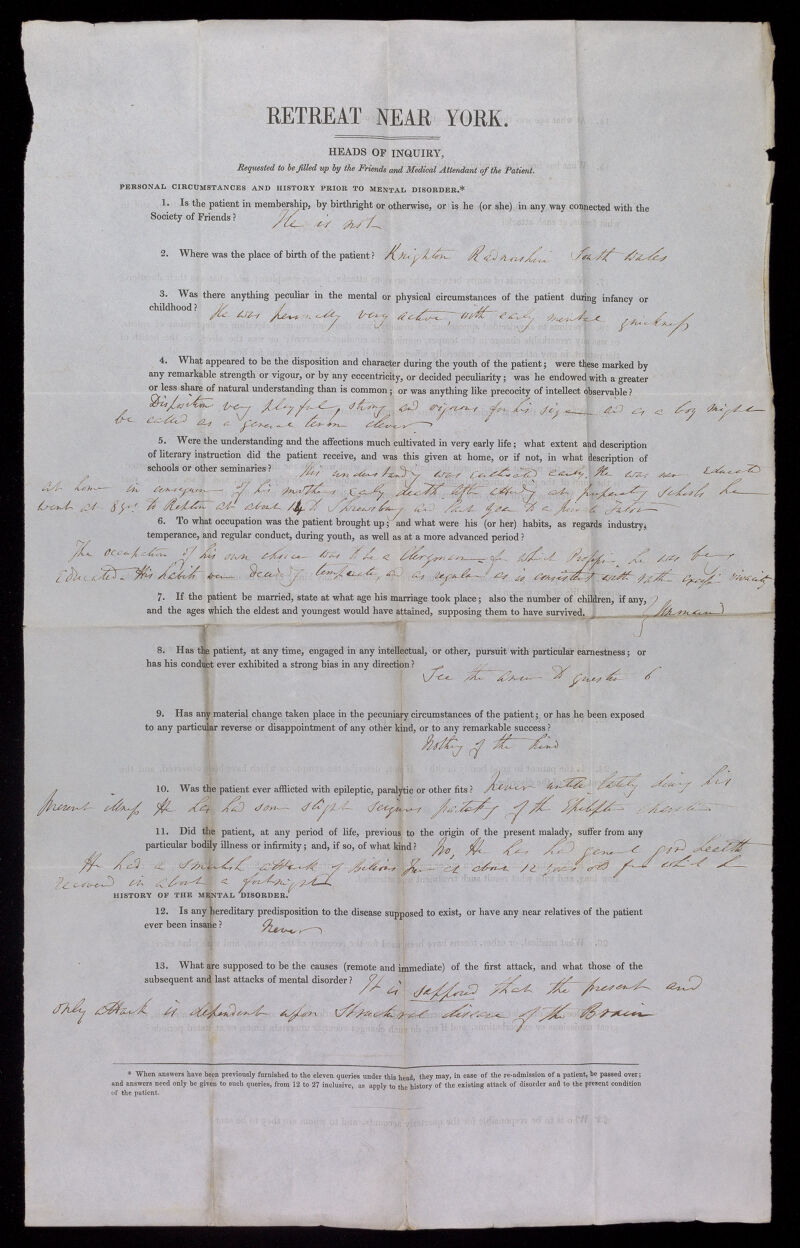 RETREAT NEAR YORK.
HEADS OF INQUIRY,
Requested to be filled up by the Friends and Medical Attendant of the Patient.
PERSONAL CIRCUMSTANCES AND HISTORY PRIOR TO MENTAL DISORDER.*
1. Is the patient in membership, by birthright or otherwise, or is he (or she) in any way connected with the
Society of Friends? He is not
2. Where was the place of birth of the patient? Knighton Radnorshire South Wales
3. Was there anything peculiar in the mental or physical circumstances of the patient during infancy or
childhood? He was very active, with early mental quickness
4. What appeared to be the disposition and character during the youth of the patient; were these marked by
any remarkable strength or vigour, or by any eccentricity, or decided peculiarity; was he endowed with a greater
or less share of natural understanding than is common; or was anything like precocity of intellect observable?
Disposition very playful, strong and vigorous for his size and as a boy might
be called as a general term clever
5. Were the understanding and the affections much cultivated in very early life; what extent and description
of literary instruction did the patient receive, and was this given at home, or if not, in what description of
schools or other seminaries? His understanding was cultivated early. He was never educated
at home in consequence of his mothers early death. After attending at preparatory schools he
went at 8 yrs. to Repton at about 14 to Shrewsbury and last year to a private Tutor
6. To what occupation was the patient brought up; and what were his (or her) habits, as regards industry,
temperance, and regular conduct, during youth, as well as at more advanced period?
The occupation of his own choice was to be a Clergyman for which he was being
educated. His habits were decidedly temperate, and as regular as is consistent with rather vivacity
7. If the patient be married, state at what age his marriage took place; also the number of children, if any,
and the ages which the eldest and youngest would have attained, supposing them to have survived. Unmarried
8. Has the patient, at any time, engaged in any intellectual, or other, pursuit with particular earnestness; or
has his conduct ever exhibited a strong bias in any direction? See the answer to question 6
9. Has any material change taken place in the pecuniary circumstances of the patient; or has he been exposed
to any particular reverse or disappointment of any other kind, or to any remarkable success?
Nothing of the kind
10. Was the patient ever afflicted with epileptic, paralytic or other fits? Never until lately during his
present illness He has had some slight seizures partaking of the Epileptic character
11. Did the patient, at any period of life, previous to the origin of the present malady, suffer from any
particular bodily illness or infirmity; and, if so, of what kind? No, He has had general good health
He had a smartish attack of bilious fever at about 12 years old from which he
recovered in about a fortnight
HISTORY OF THE MENTAL DISORDER.
12. Is any hereditary predisposition to the disease supposed to exist, or have any near relatives of the patient
ever been insane? Never
13. What are supposed to be the causes (remote and immediate) of the first attack, and what those of the
subsequent and last attacks of mental disorder? It is supposed that the present and
only attack is dependent upon structural disease of the Brain
* When answers have been previously furnished to the eleven queries under this head, they may, in case of the re-admission of a patient, be passed over;
and answers need only be given to such queries, from 12 to 27 inclusive, as apply to the history of the existing attack of disorder and to the present condition
of the patient.